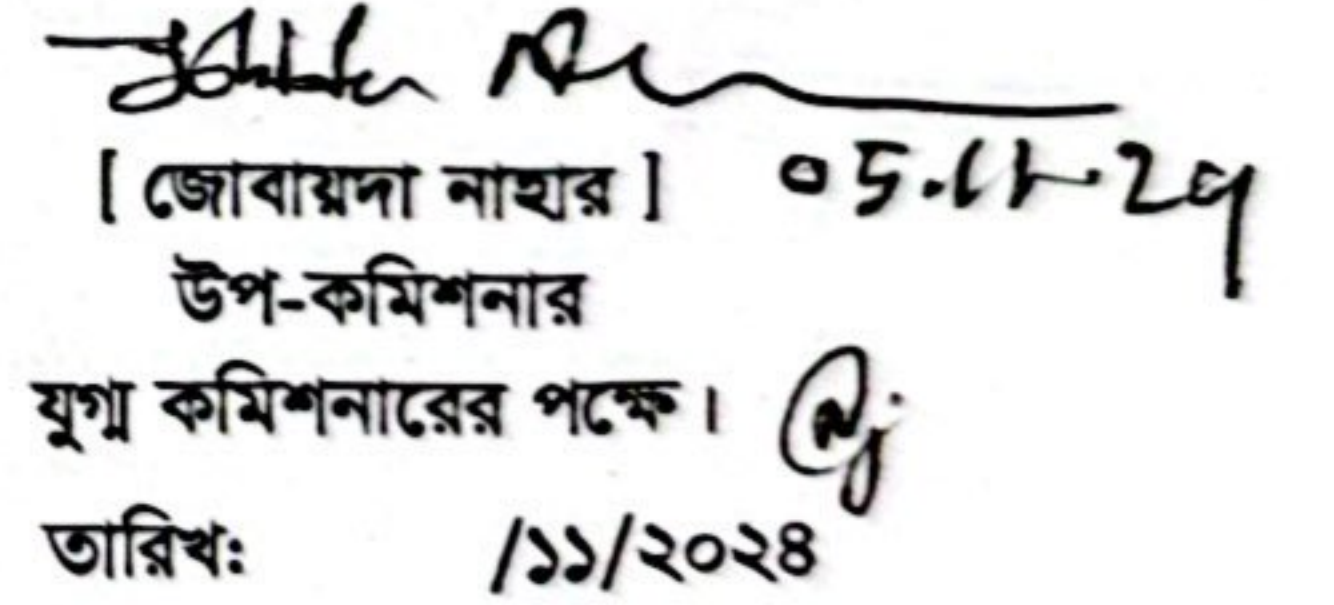 [ জোবায়দা নাহার ] 05.11.24
উপ-কমিশনার
যুগ্ম কমিশনারের পক্ষে।
তারিখঃ /১১/২০২৪